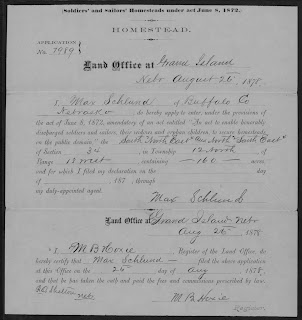 (Soldiers' and Sailors' Homesteads under act June 8, 1872.)
HOMESTEAD.
APPLICATION
No. 7989
Land Office at Grand Island
Nebr August 26 1878
I, Max Schlund of Buffalo Co
Nebraska do hereby apply to enter, under the provisions of
the act of June 8, 1872, amendatory of an act entitled "An act to enable honorably
discharged soldiers and sailors, their widows and orphan children, to secure homesteads
on the public domain," the South North East & North South East
of Section 34 in Township 12 North of
Range 13 West containing 160 acres,
and for which I filed my declaration on the day
of , 187 , through
my duly-appointed agent.
Max Schlund
Land Office at Grand Island Nebr
Aug 26 1878
I, M B Hoxie, Register of the Land Office, do
hereby certify that Max Schlund filed the above application
at this Office on the 26 day of Aug 1878,
and that he has taken the oath and paid the fees and commissions prescribed by law.
M B Hoxie